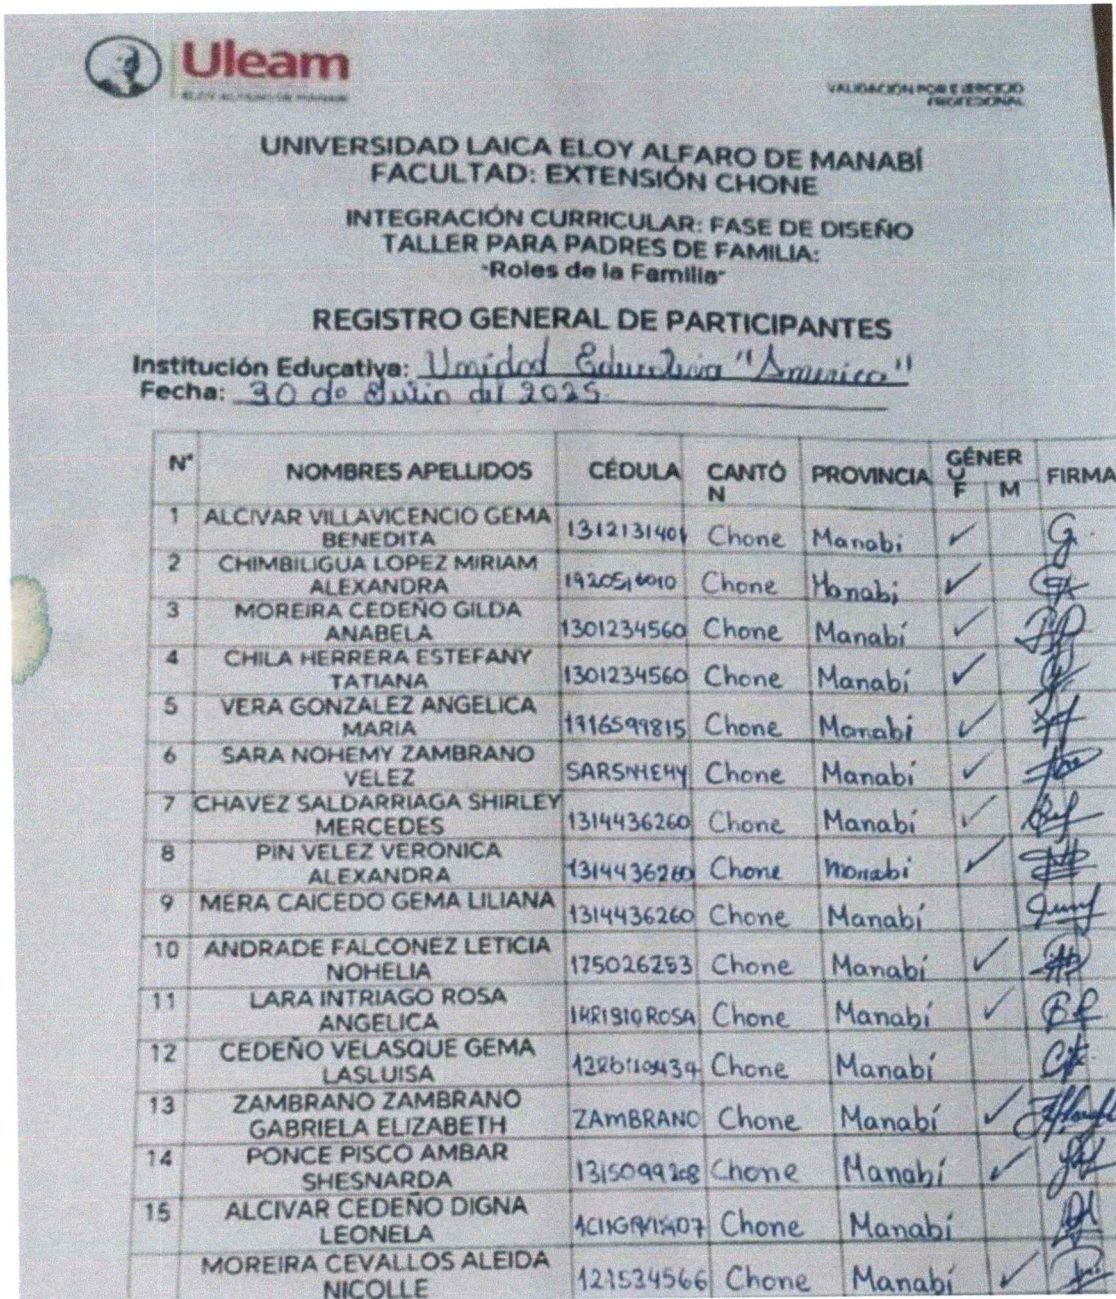 Uleam
ELOY ALFARO DE MANABÍ
VALIDACIÓN POR EJERCICIO
PROFESIONAL
UNIVERSIDAD LAICA ELOY ALFARO DE MANABÍ
FACULTAD: EXTENSIÓN CHONE
INTEGRACIÓN CURRICULAR: FASE DE DISEÑO
TALLER PARA PADRES DE FAMILIA:
"Roles de la Familia"
REGISTRO GENERAL DE PARTICIPANTES
Institución Educativa: Unidad Educativa "America"
Fecha: 30 de Julio del 2025.
N° NOMBRES APELLIDOS CÉDULA CANTÓ
N PROVINCIA GÉNER
O
F M FIRMA
1 ALCIVAR VILLAVICENCIO GEMA
BENEDITA 1312131401 Chone Manabi ✓
2 CHIMBILIGUA LOPEZ MIRIAM
ALEXANDRA Chone Manabi ✓
3 MOREIRA CEDEÑO GILDA
ANABELA 1301234560 Chone Manabí ✓
4 CHILA HERRERA ESTEFANY
TATIANA 1301234560 Chone Manabí ✓
5 VERA GONZALEZ ANGELICA
MARIA 1916599815 Chone Manabi ✓
6 SARA NOHEMY ZAMBRANO
VELEZ Chone Manabí ✓
7 CHAVEZ SALDARRIAGA SHIRLEY
MERCEDES 1314436260 Chone Manabí ✓
8 PIN VELEZ VERONICA
ALEXANDRA 1314436260 Chone Manabi ✓
9 MERA CAICEDO GEMA LILIANA 1314436260 Chone Manabí
10 ANDRADE FALCONEZ LETICIA
NOHELIA 175026253 Chone Manabí ✓
11 LARA INTRIAGO ROSA
ANGELICA Chone Manabí ✓
12 CEDEÑO VELASQUE GEMA
LASLUISA Chone Manabí
13 ZAMBRANO ZAMBRANO
GABRIELA ELIZABETH ZAMBRANO Chone Manabí ✓
14 PONCE PISCO AMBAR
SHESNARDA 1315099208 Chone Manabí ✓
15 ALCIVAR CEDEÑO DIGNA
LEONELA Chone Manabí
MOREIRA CEVALLOS ALEIDA
NICOLLE 121534566 Chone Manabí ✓